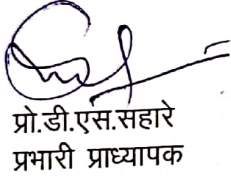 प्रो.डी.एस.सहारे
प्रभारी प्राध्यापक